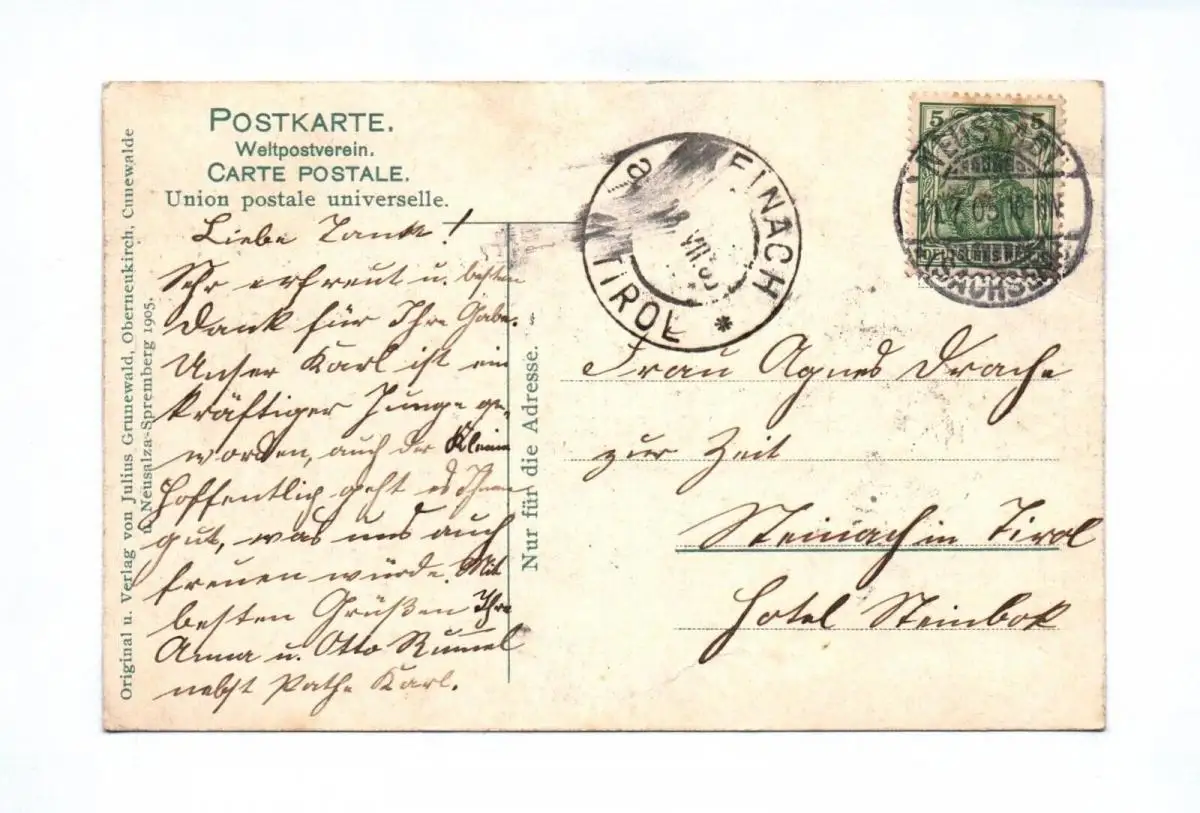 POSTKARTE.
Weltpostverein.
CARTE POSTALE.
Union postale universelle.
Original u. Verlag von Julius Grunewald, Oberneukirch, Cunewalde
u. Neusalza-Spremberg 1905.
Liebe Tante!
Sehr erfreut u. besten
Dank für Ihre Gabe.
Unser Karl ist ein
kräftiger Junge ge-
worden, auch der Kleine
Hoffentlich geht es Ihnen
gut, was uns auch
freuen würde. Mit
besten Grüßen Ihre
Anna u. Otto
nebst Pathe Karl.
Nur für die Adresse.
EINACH
TIROL *
a
VII
5 5
NEUSTADT
7 05 10
DEUTSCHES REICH
SACHSEN
Frau Agnes Drache
zur Zeit
Steinach in Tirol
Hotel Steinbok